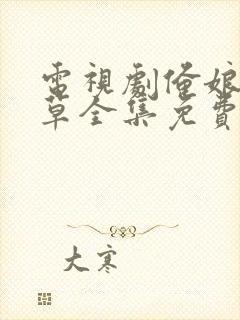 電視劇俺娘
草全集免費
大寒